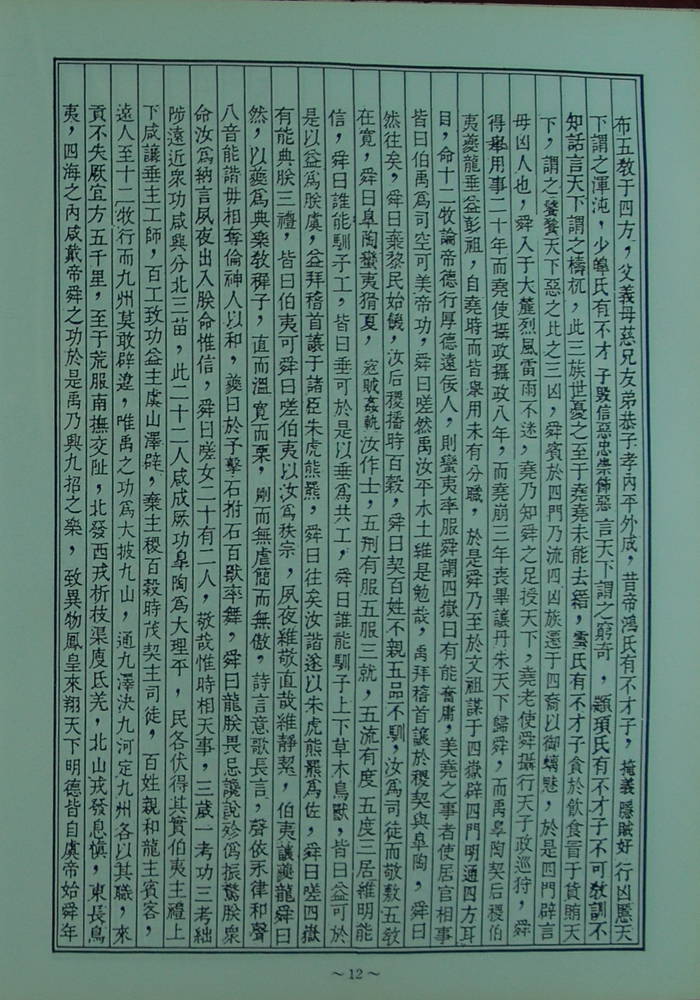 布五敎于四方，父義母慈兄友弟恭子孝內平外成，昔帝鴻氏有不才子，掩義隱賊好行凶慝天
下謂之渾沌，少皥氏有不才子毀信惡忠崇飾惡言天下謂之窮奇，顓頊氏有不才子不可敎訓不
知話言天下謂之檮杌，此三族世憂之至于堯堯未能去縉雲氏有不才子貪於飲食冒于貨賄天
下，謂之饕餮天下惡之比之三凶，舜賓於四門乃流四凶族遷于四裔以御螭魅，於是四門辟言
毋凶人也，舜入于大麓烈風雷雨不迷，堯乃知舜之足授天下，堯老使舜攝行天子政巡狩，舜
得擧用事二十年而堯使攝政攝政八年，而堯崩三年喪畢讓丹朱天下歸舜，而禹皋陶契后稷伯
夷夔龍垂益彭祖，自堯時而皆擧用未有分職，於是舜乃至於文祖謀于四嶽辟四門明通四方耳
目，命十二牧論帝德行厚德遠佞人，則蠻夷率服舜謂四嶽曰有能奮庸，美堯之事者使居官相事
皆曰伯禹爲司空可美帝功，舜曰嗟然禹汝平水土維是勉哉，禹拜稽首讓於稷契與皋陶，舜曰
然往矣，舜曰棄黎民始饑，汝后稷播時百穀，舜曰契百姓不親五品不馴，汝爲司徒而敬敷五敎
在寬，舜曰皋陶蠻夷猾夏，寇賊姦軌汝作士，五刑有服五服三就，五流有度五度三居維明能
信，舜曰誰能馴予工，皆曰垂可於是以垂爲共工，舜曰誰能馴予上下草木鳥獸，皆曰益可於
是以益爲朕虞，益拜稽首讓于諸臣朱虎熊羆，舜曰往矣汝諧遂以朱虎熊羆爲佐，舜曰嗟四嶽
有能典朕三禮，皆曰伯夷可舜曰嗟伯夷以汝爲秩宗，夙夜維敬直哉維靜絜，伯夷讓夔龍舜曰
然，以夔爲典樂敎穉子，直而溫寬而栗，剛而無虐簡而無傲，詩言意歌長言，聲依永律和聲
八音能諧毋相奪倫神人以和，夔曰於予擊石拊石百獸率舞，舜曰龍朕畏忌讒說殄僞振驚朕衆
命汝爲納言夙夜出入朕命惟信，舜曰嗟女二十有二人，敬哉惟時相天事，三歲一考功三考絀
陟遠近衆功咸興分北三苗，此二十二人咸成厥功皋陶爲大理平，民各伏得其實伯夷主禮上
下咸讓垂主工師，百工致功益主虞山澤辟，棄主稷百穀時茂契主司徒，百姓親和龍主賓客，
遠人至十二牧行而九州莫敢辟違，唯禹之功爲大披九山，通九澤決九河定九州各以其職，來
貢不失厥宜方五千里，至于荒服南撫交阯，北發西戎析枝渠廋氐羌，北山戎發息愼，東長鳥
夷，四海之內咸戴帝舜之功於是禹乃興九招之樂，致異物鳳皇來翔天下明德皆自虞帝始舜年
～12～